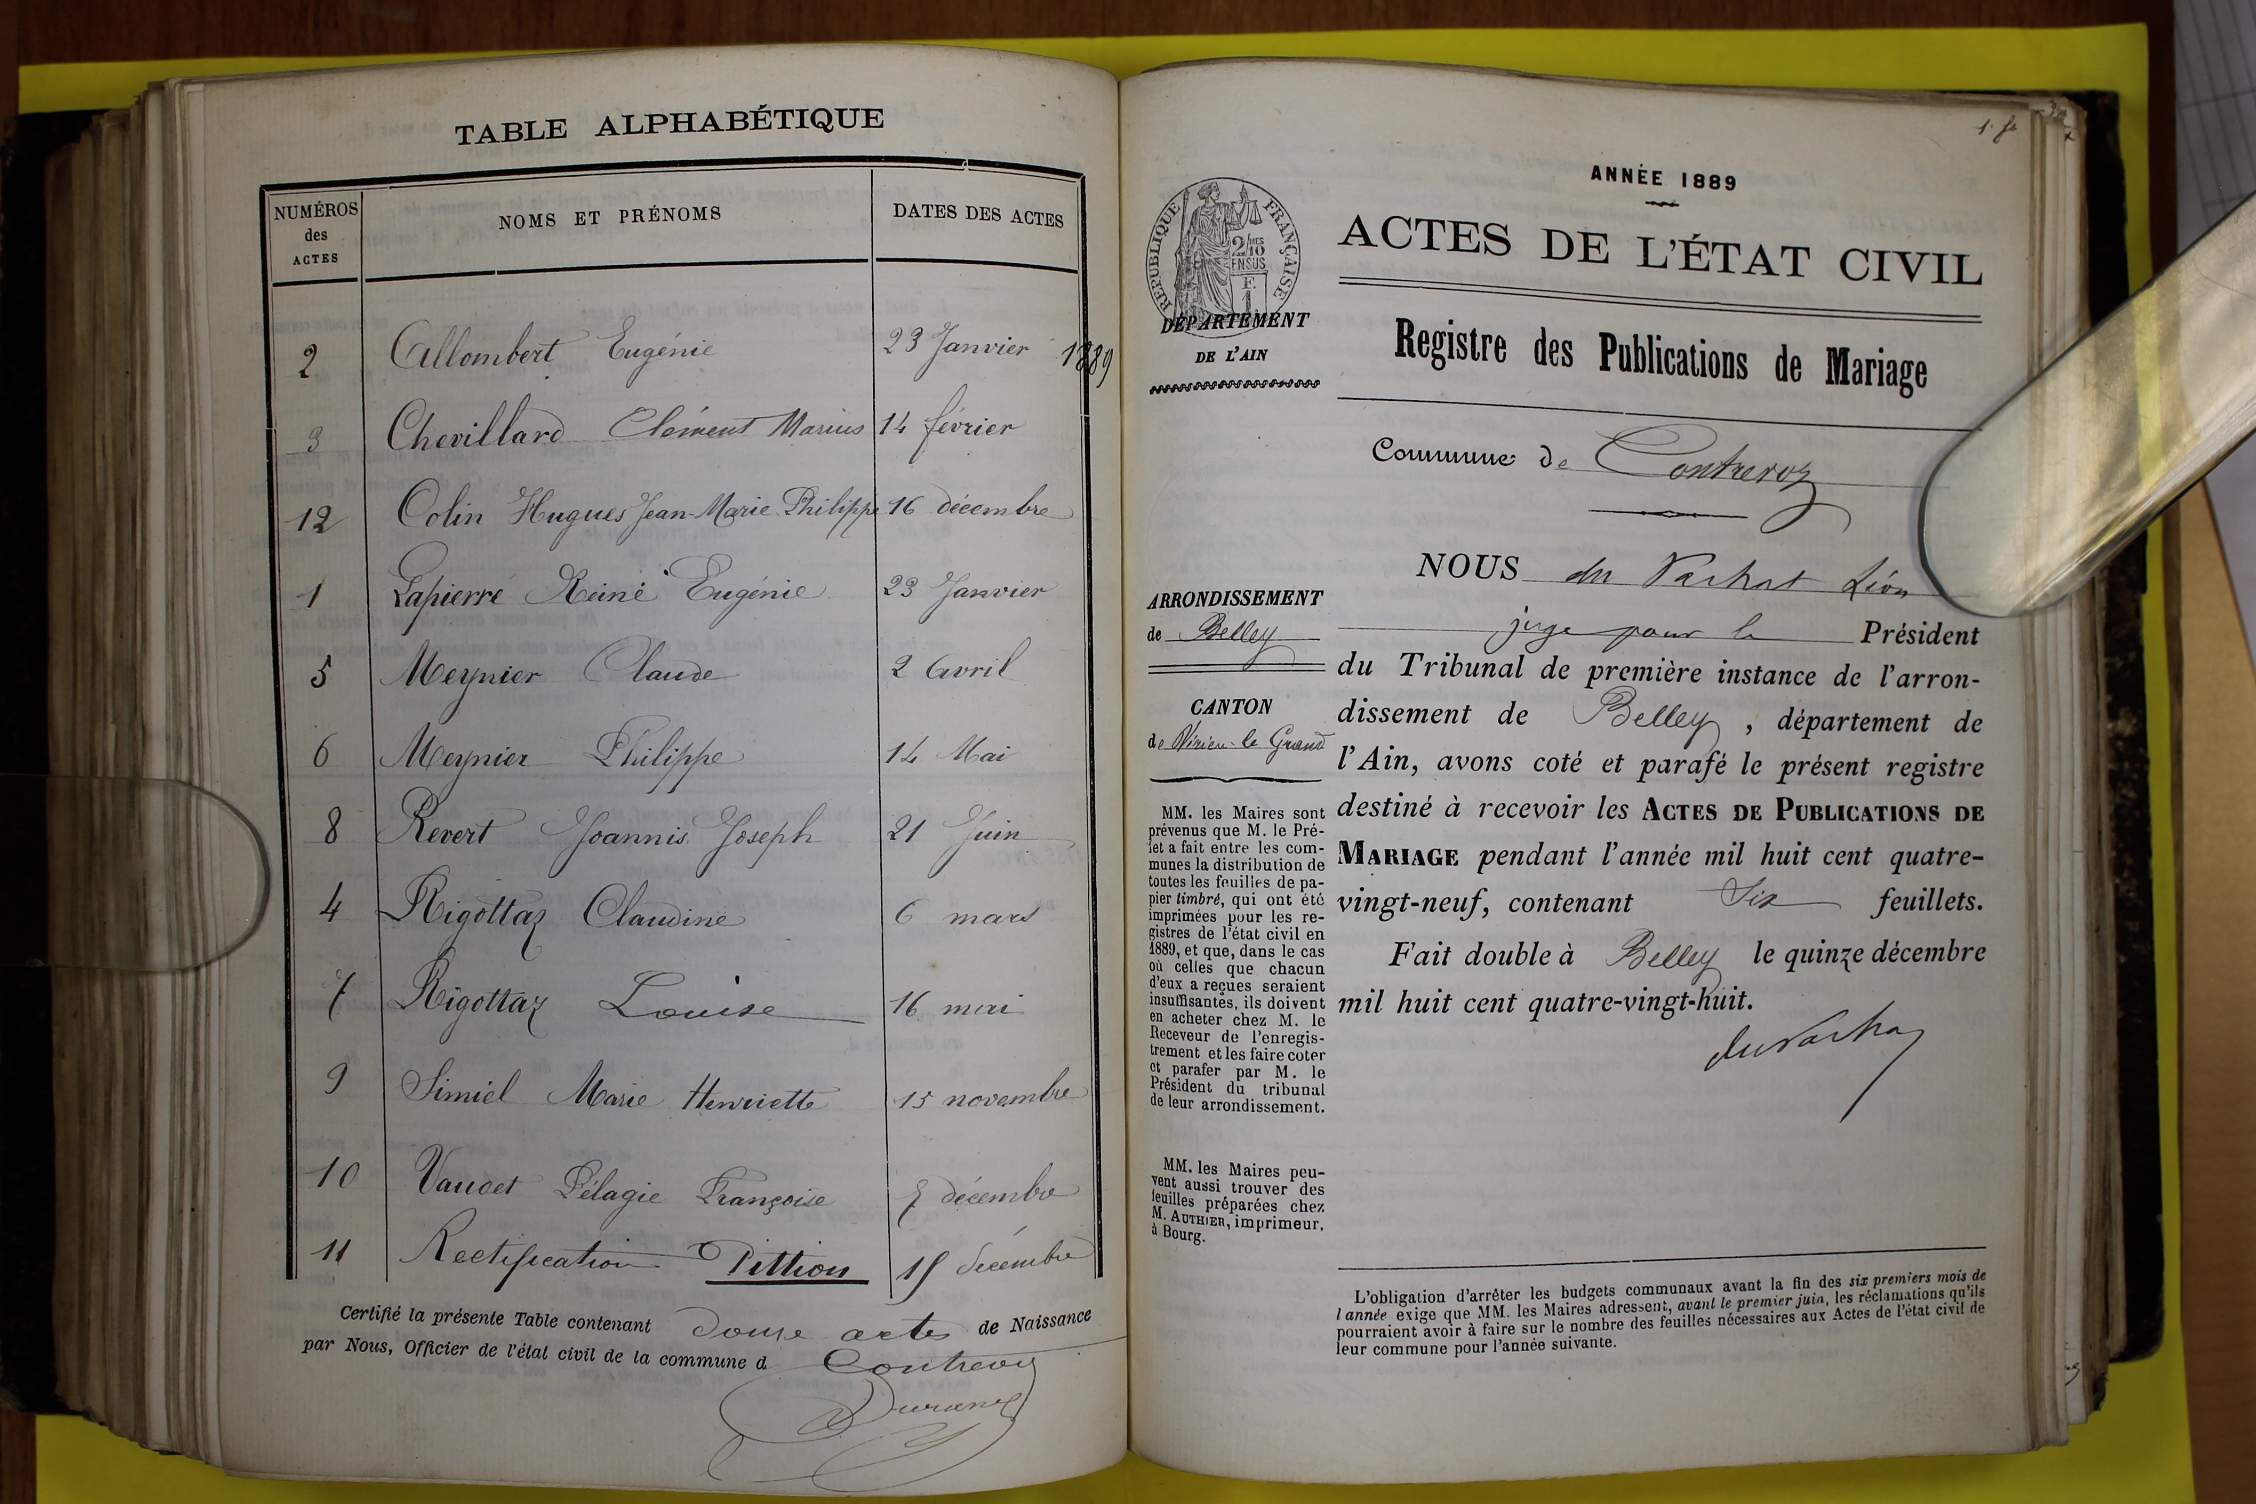 TABLE ALPHABÉTIQUE
NUMÉROS des ACTES
NOMS ET PRÉNOMS
DATES DES ACTES
2 Allombert Eugénie 23 Janvier 1889
3 Chevillard Clément Marius 14 février
12 Colin Hugues Jean-Marie Philippe 16 décembre
1 Lapierre Reine Eugénie 23 Janvier
5 Meynier Claude 2 Avril
6 Meynier Philippe 14 Mai
8 Revert Joannis Joseph 21 Juin
4 Rigottaz Claudine 6 mars
7 Rigottaz Louise 16 mai
9 Simiel Marie Henriette 15 novembre
10 Vaudet Pélagie Françoise 7 décembre
11 Rectification Pittion 15 décembre
Certifié la présente Table contenant douze actes de Naissance
par Nous, Officier de l'état civil de la commune d Contrevoz
Durand
1. f.
ANNÉE 1889
RÉPUBLIQUE FRANÇAISE
2/10
EN SUS
F.
1
ACTES DE L'ÉTAT CIVIL
DÉPARTEMENT
DE L'AIN
Registre des Publications de Mariage
Commune de Contrevoz
ARRONDISSEMENT
de Belley
CANTON
de Virieu-le Grand
MM. les Maires sont
prévenus que M. le Pré-
fet a fait entre les com-
munes la distribution de
toutes les feuilles de pa-
pier timbré, qui ont été
imprimées pour les re-
gistres de l'état civil en
1889, et que, dans le cas
où celles que chacun
d'eux a reçues seraient
insuffisantes, ils doivent
en acheter chez M. le
Receveur de l'enregis-
trement et les faire coter
et parafer par M. le
Président du tribunal
de leur arrondissement.
MM. les Maires peu-
vent aussi trouver des
feuilles préparées chez
M. AUTHIER, imprimeur,
à Bourg.
NOUS du Vachat Léon
juge pour le Président
du Tribunal de première instance de l'arron-
dissement de Belley, département de
l'Ain, avons coté et parafé le présent registre
destiné à recevoir les ACTES DE PUBLICATIONS DE
MARIAGE pendant l'année mil huit cent quatre-
vingt-neuf, contenant Six feuillets.
Fait double à Belley le quinze décembre
mil huit cent quatre-vingt-huit.
du Vachat
L'obligation d'arrêter les budgets communaux avant la fin des six premiers mois de
l'année exige que MM. les Maires adressent, avant le premier juin, les réclamations qu'ils
pourraient avoir à faire sur le nombre des feuilles nécessaires aux Actes de l'état civil de
leur commune pour l'année suivante.